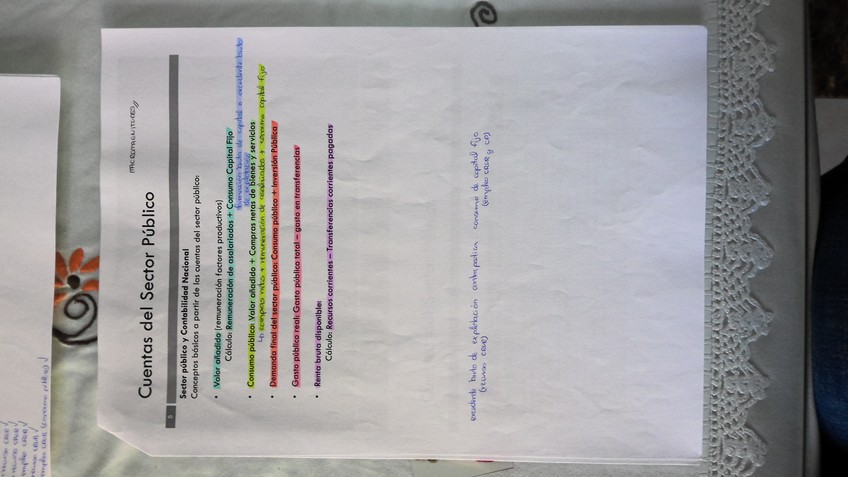 MACROMAGNITUDES //
Cuentas del Sector Público
5
Sector público y Contabilidad Nacional
Conceptos básicos a partir de las cuentas del sector público:
• Valor añadido (remuneración factores productivos)
Cálculo: Remuneración de asalariados + Consumo Capital Fijo
formación bruta de capital o excedente bruto
de explotación
• Consumo público: Valor añadido + Compras netas de bienes y servicios
↳ compras netas + remuneración de asalariados + consumo capital fijo
• Demanda final del sector público: Consumo público + Inversión Pública
• Gasto público real: Gasto público total – gasto en transferencias
• Renta bruta disponible:
Cálculo: Recursos corrientes – Transferencias corrientes pagadas
excedente bruto de explotación consumo de capital fijo
(recurso CRUR) (empleo CRUR y CP)
recurso CRUR √
empleo CRUR √
recurso CRUR √